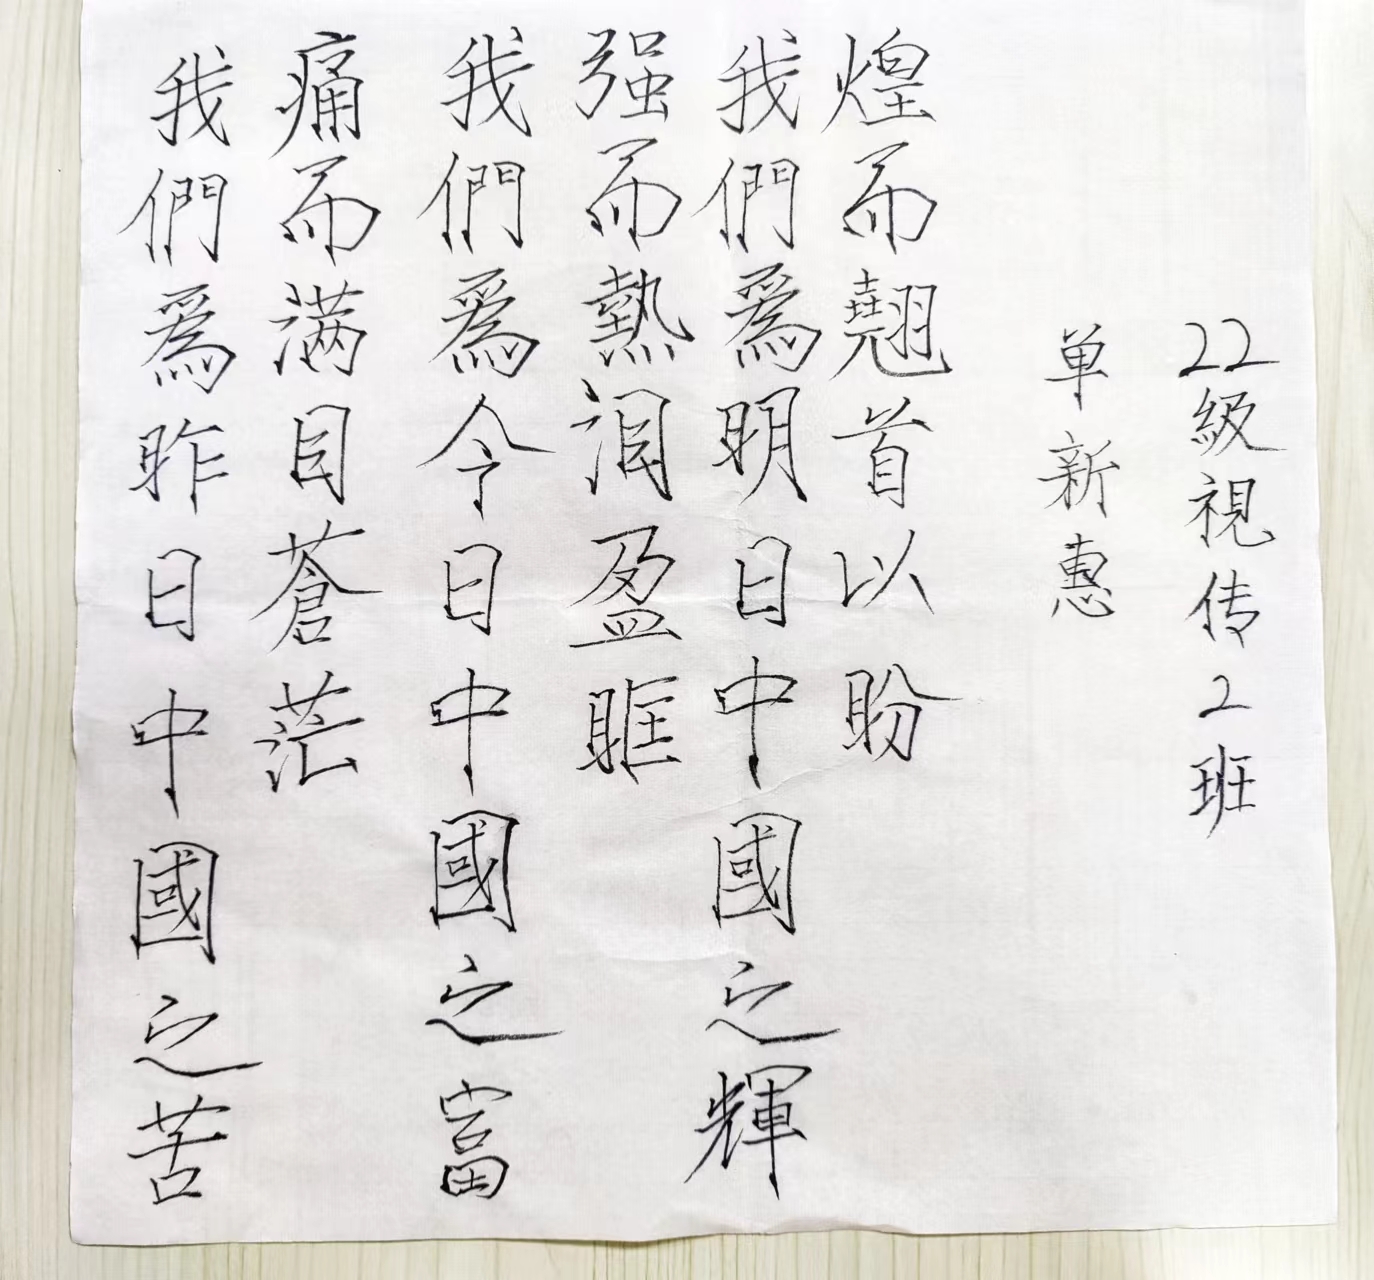 我們爲昨日中國之苦
痛而满目蒼茫
我們爲今日中國之富
强而熱泪盈眶
我們爲明日中國之輝
煌而翹首以盼
单新惠
22級視传2班